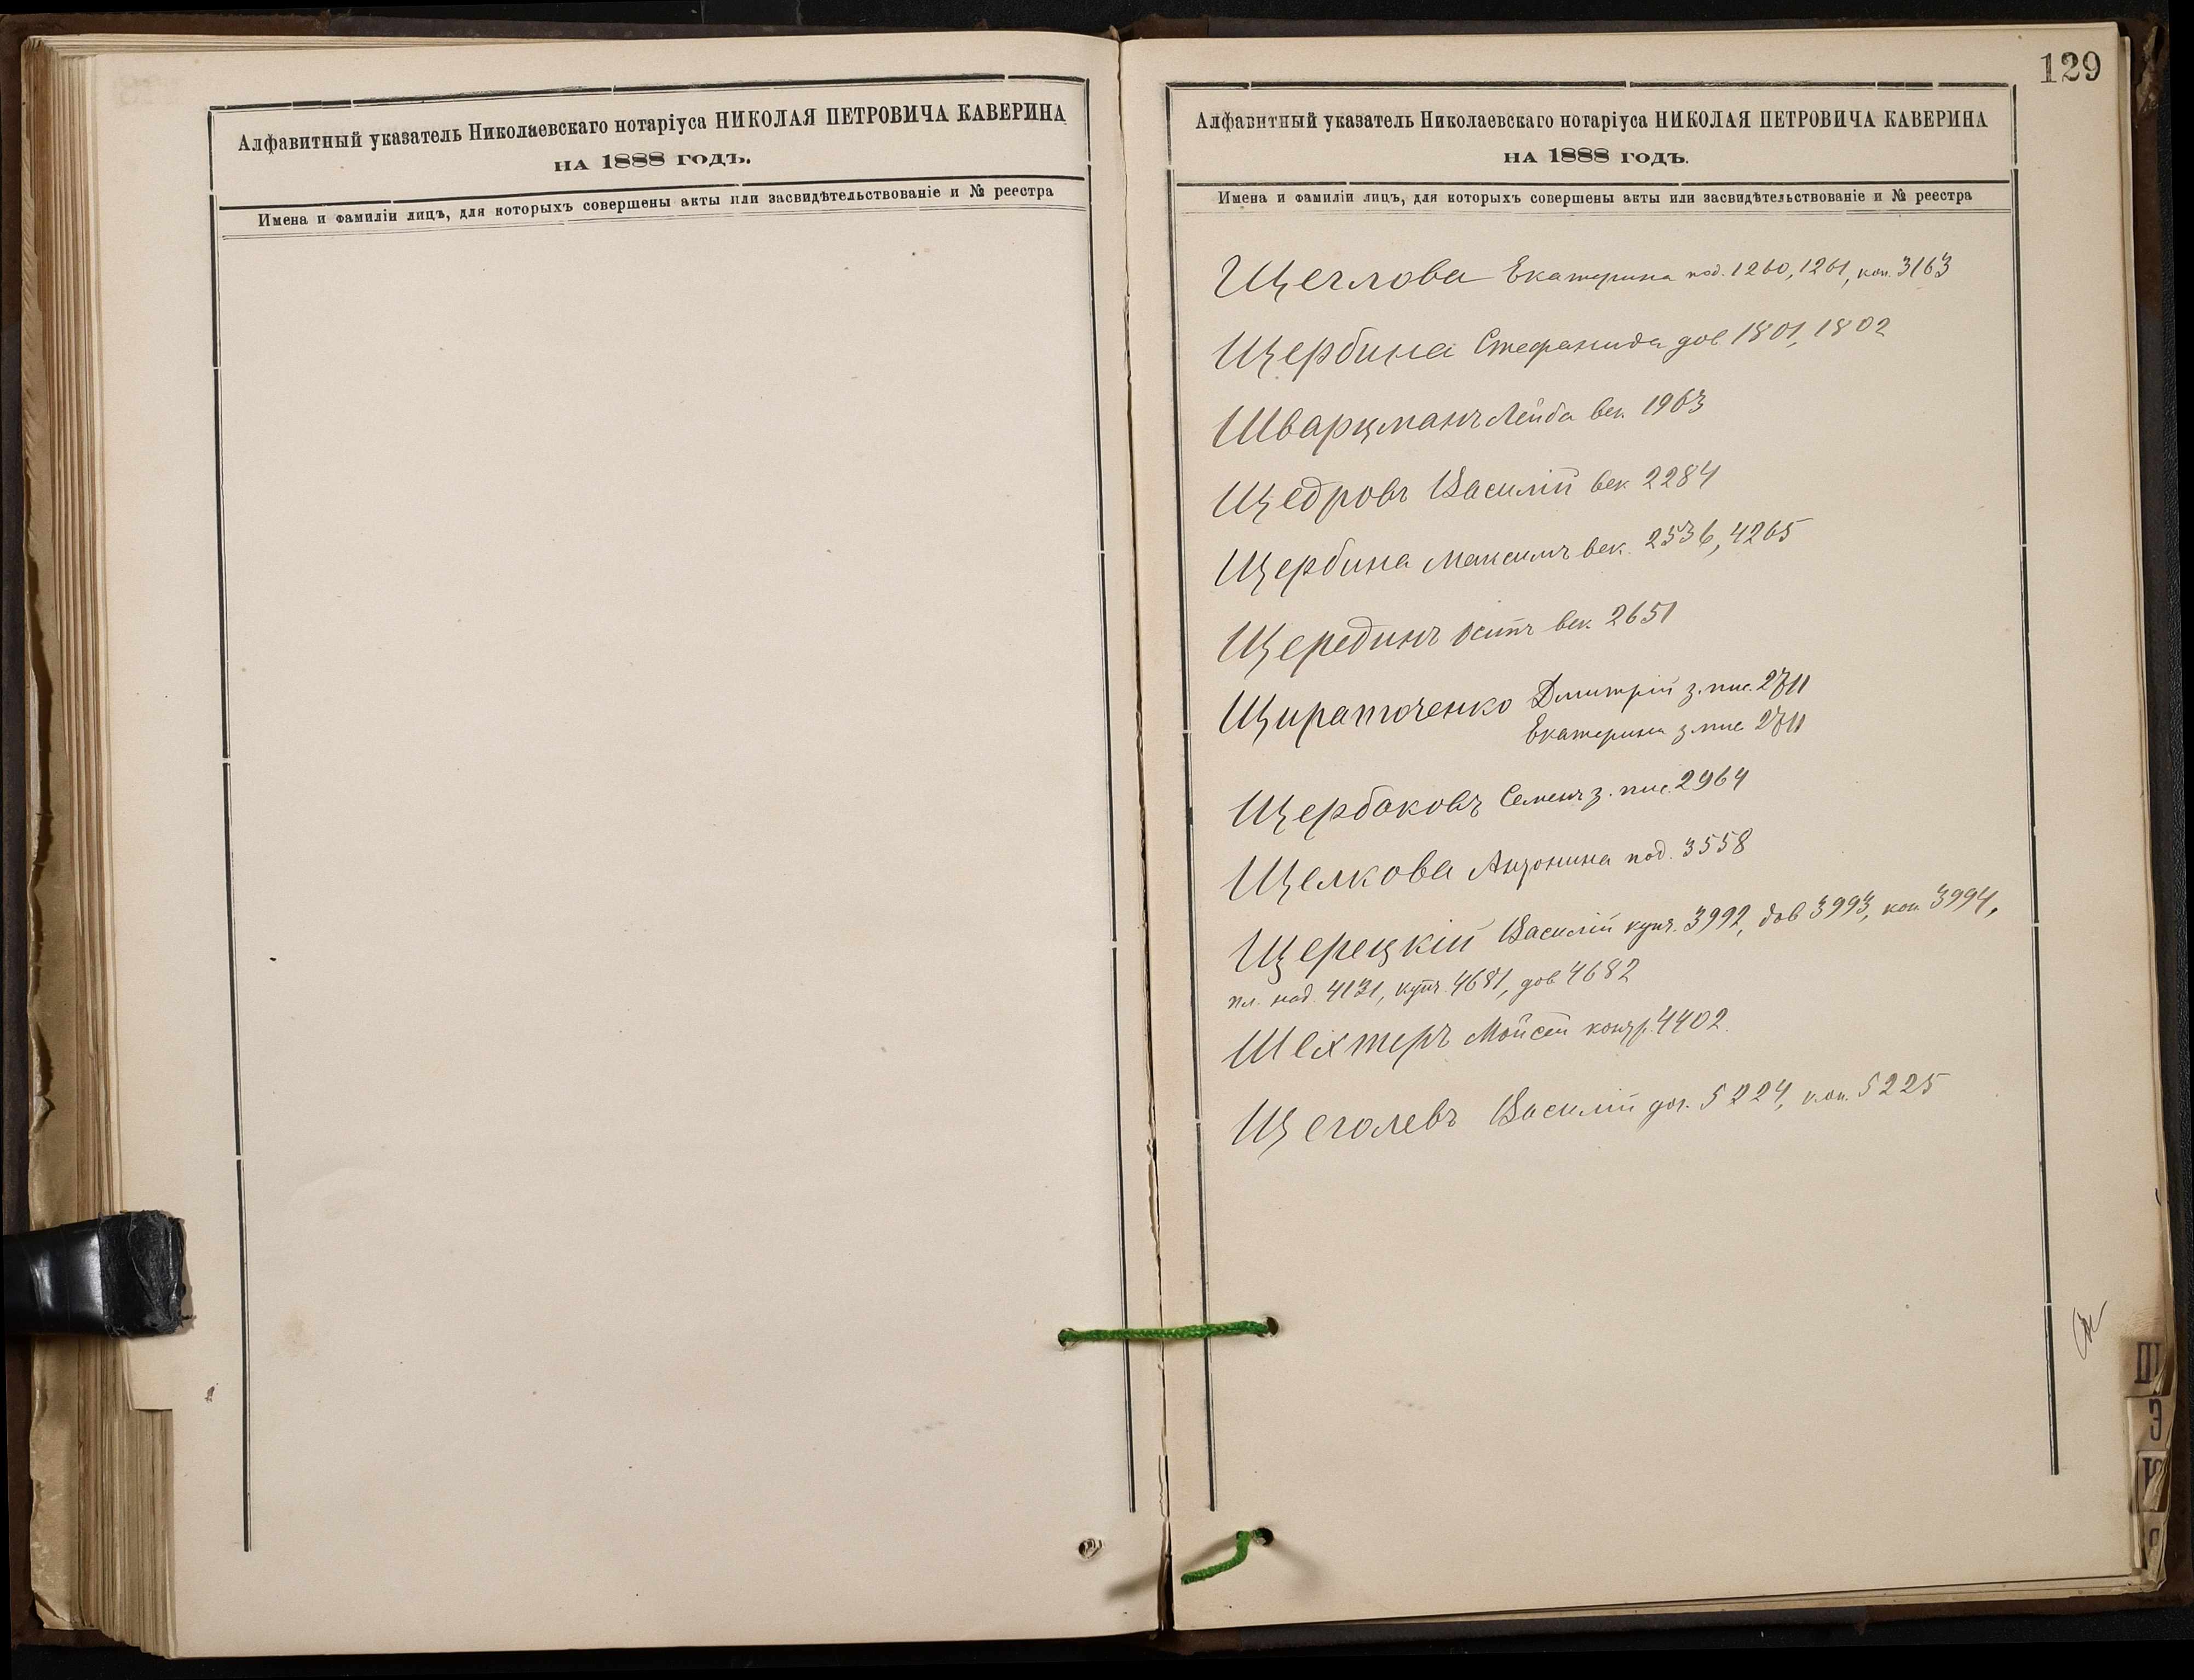 Алфавитный указатель Николаевскаго нотаріуса НИКОЛАЯ ПЕТРОВИЧА КАВЕРИНА
НА 1888 ГОДЪ.
Имена и фамиліи лицъ, для которыхъ совершены акты или засвидѣтельствованіе и № реестра
129
Алфавитный указатель Николаевскаго нотаріуса НИКОЛАЯ ПЕТРОВИЧА КАВЕРИНА
НА 1888 ГОДЪ.
Имена и фамиліи лицъ, для которыхъ совершены акты или засвидѣтельствованіе и № реестра
Щеглова Екатерина под. 1260, 1261, коп. 3163
Щербина Стефанида дов 1801, 1802
Шварцманъ Лейба век 1963
Щедровъ Василій век 2284
Щербина Максимъ век. 2536, 4265
Щерединъ Осипъ век 2651
Щираточенко Дмитрій з. пис. 2711
Екатерина з. пис 2711
Щербаковъ Семенъ з. пис. 2964
Щелкова Антонина под. 3558
Щерецкій Василій купч. 3992, дов 3993, коп 3994,
пл. над. 4131, купч. 4681, дов 4682
Шехтеръ Мойсей контр. 4402.
Щеголевъ Василій дог. 5224, коп. 5225
Щ
Э
Ю